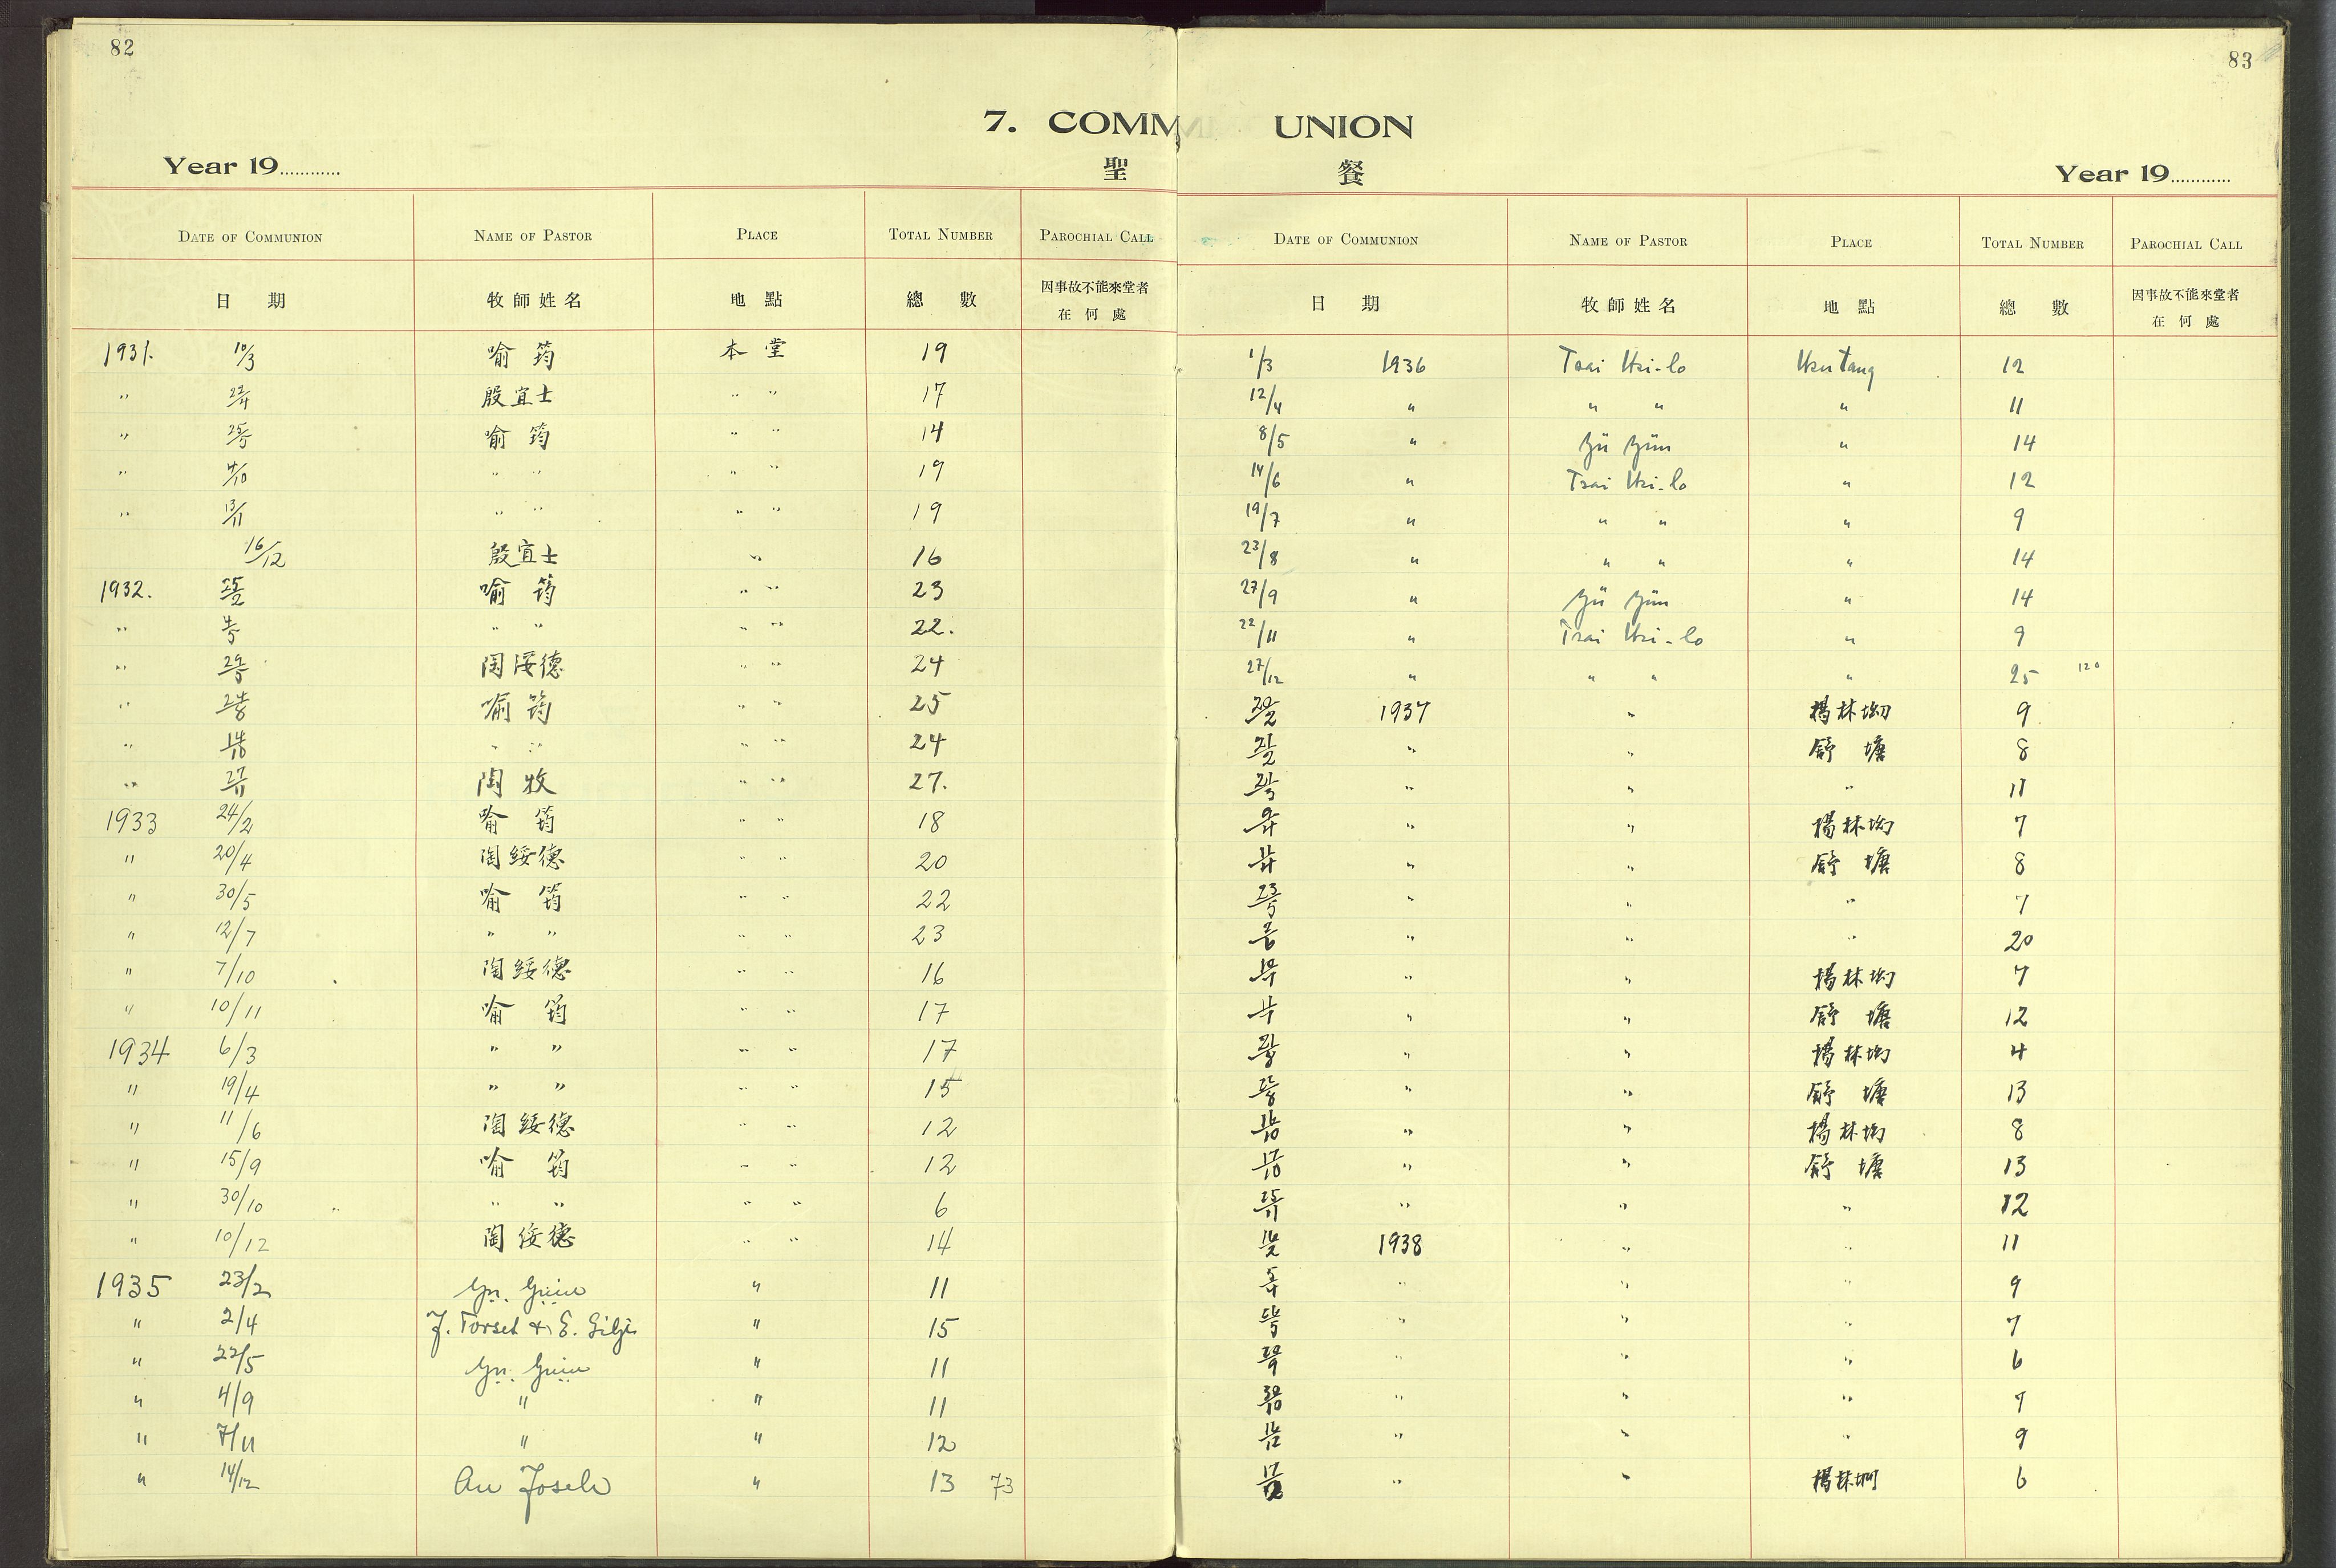 82
7. COMM
Year 19............
聖
DATE OF COMMUNION NAME OF PASTOR PLACE TOTAL NUMBER PAROCHIAL CALL
日 期 牧師姓名 地點 總數 因事故不能來堂者
在何處
1931. 10/3 喻筠 本堂 19
" 22/4 殷宜士 " " 17
" 25/5 喻筠 " " 14
" 4/10 " " " " 19
" 13/11 " " " " 19
16/12 殷宜士 " 16
1932. 25/2 喻筠 " " 23
" 4/5 " " " " 22.
" 29/5 陶綏德 " " 24
" 28/8 喻筠 " " 25
" 16/10 " " " " 24
" 27/11 陶牧 " " 27.
1933 24/2 喻筠 " " 18
" 20/4 陶綏德 " " 20
" 30/5 喻筠 " " 22
" 12/7 " " " " 23
" 7/10 陶綏德 " " 16
" 10/11 喻筠 " " 17
1934 6/3 " " " " 17
" 19/4 " " " " 15
" 11/6 陶綏德 " " 12
" 15/9 喻筠 " " 12
" 30/10 " " " " 6
" 10/12 陶綏德 " " 14
1935 23/2 " 11
" 2/4 J. Torset & E. " 15
" 22/5 " 11
" 4/9 " " 11
" 7/11 " " 12
" 14/12 " 13 73
83
UNION
餐
Year 19............
DATE OF COMMUNION NAME OF PASTOR PLACE TOTAL NUMBER PAROCHIAL CALL
日 期 牧師姓名 地點 總數 因事故不能來堂者
在何處
1/3 1936 Tsai Hsi-lo 12
12/4 " " " " 11
8/5 " Yü Yün " 14
14/6 " Tsai Hsi-lo " 12
19/7 " " " " 9
23/8 " " " " 14
27/9 " Yü Yün " 14
22/11 " Tsai Hsi-lo " 9
27/12 " " " " 25 120
20/2 1937 " 楊林坳 9
21/2 " " 舒塘 8
" " " 11
" " 楊林坳 7
" " 舒塘 8
23/5 " " " 7
" " " 20
" " 楊林坳 7
" " 舒塘 12
" " 楊林坳 4
" " 舒塘 13
16/10 " " 楊林坳 8
17/10 " " 舒塘 13
25/11 " " " 12
1938 " " 11
" " " 9
" " " 7
" " " 6
30/10 " " " 7
" " " 9
" " 楊林坳 6